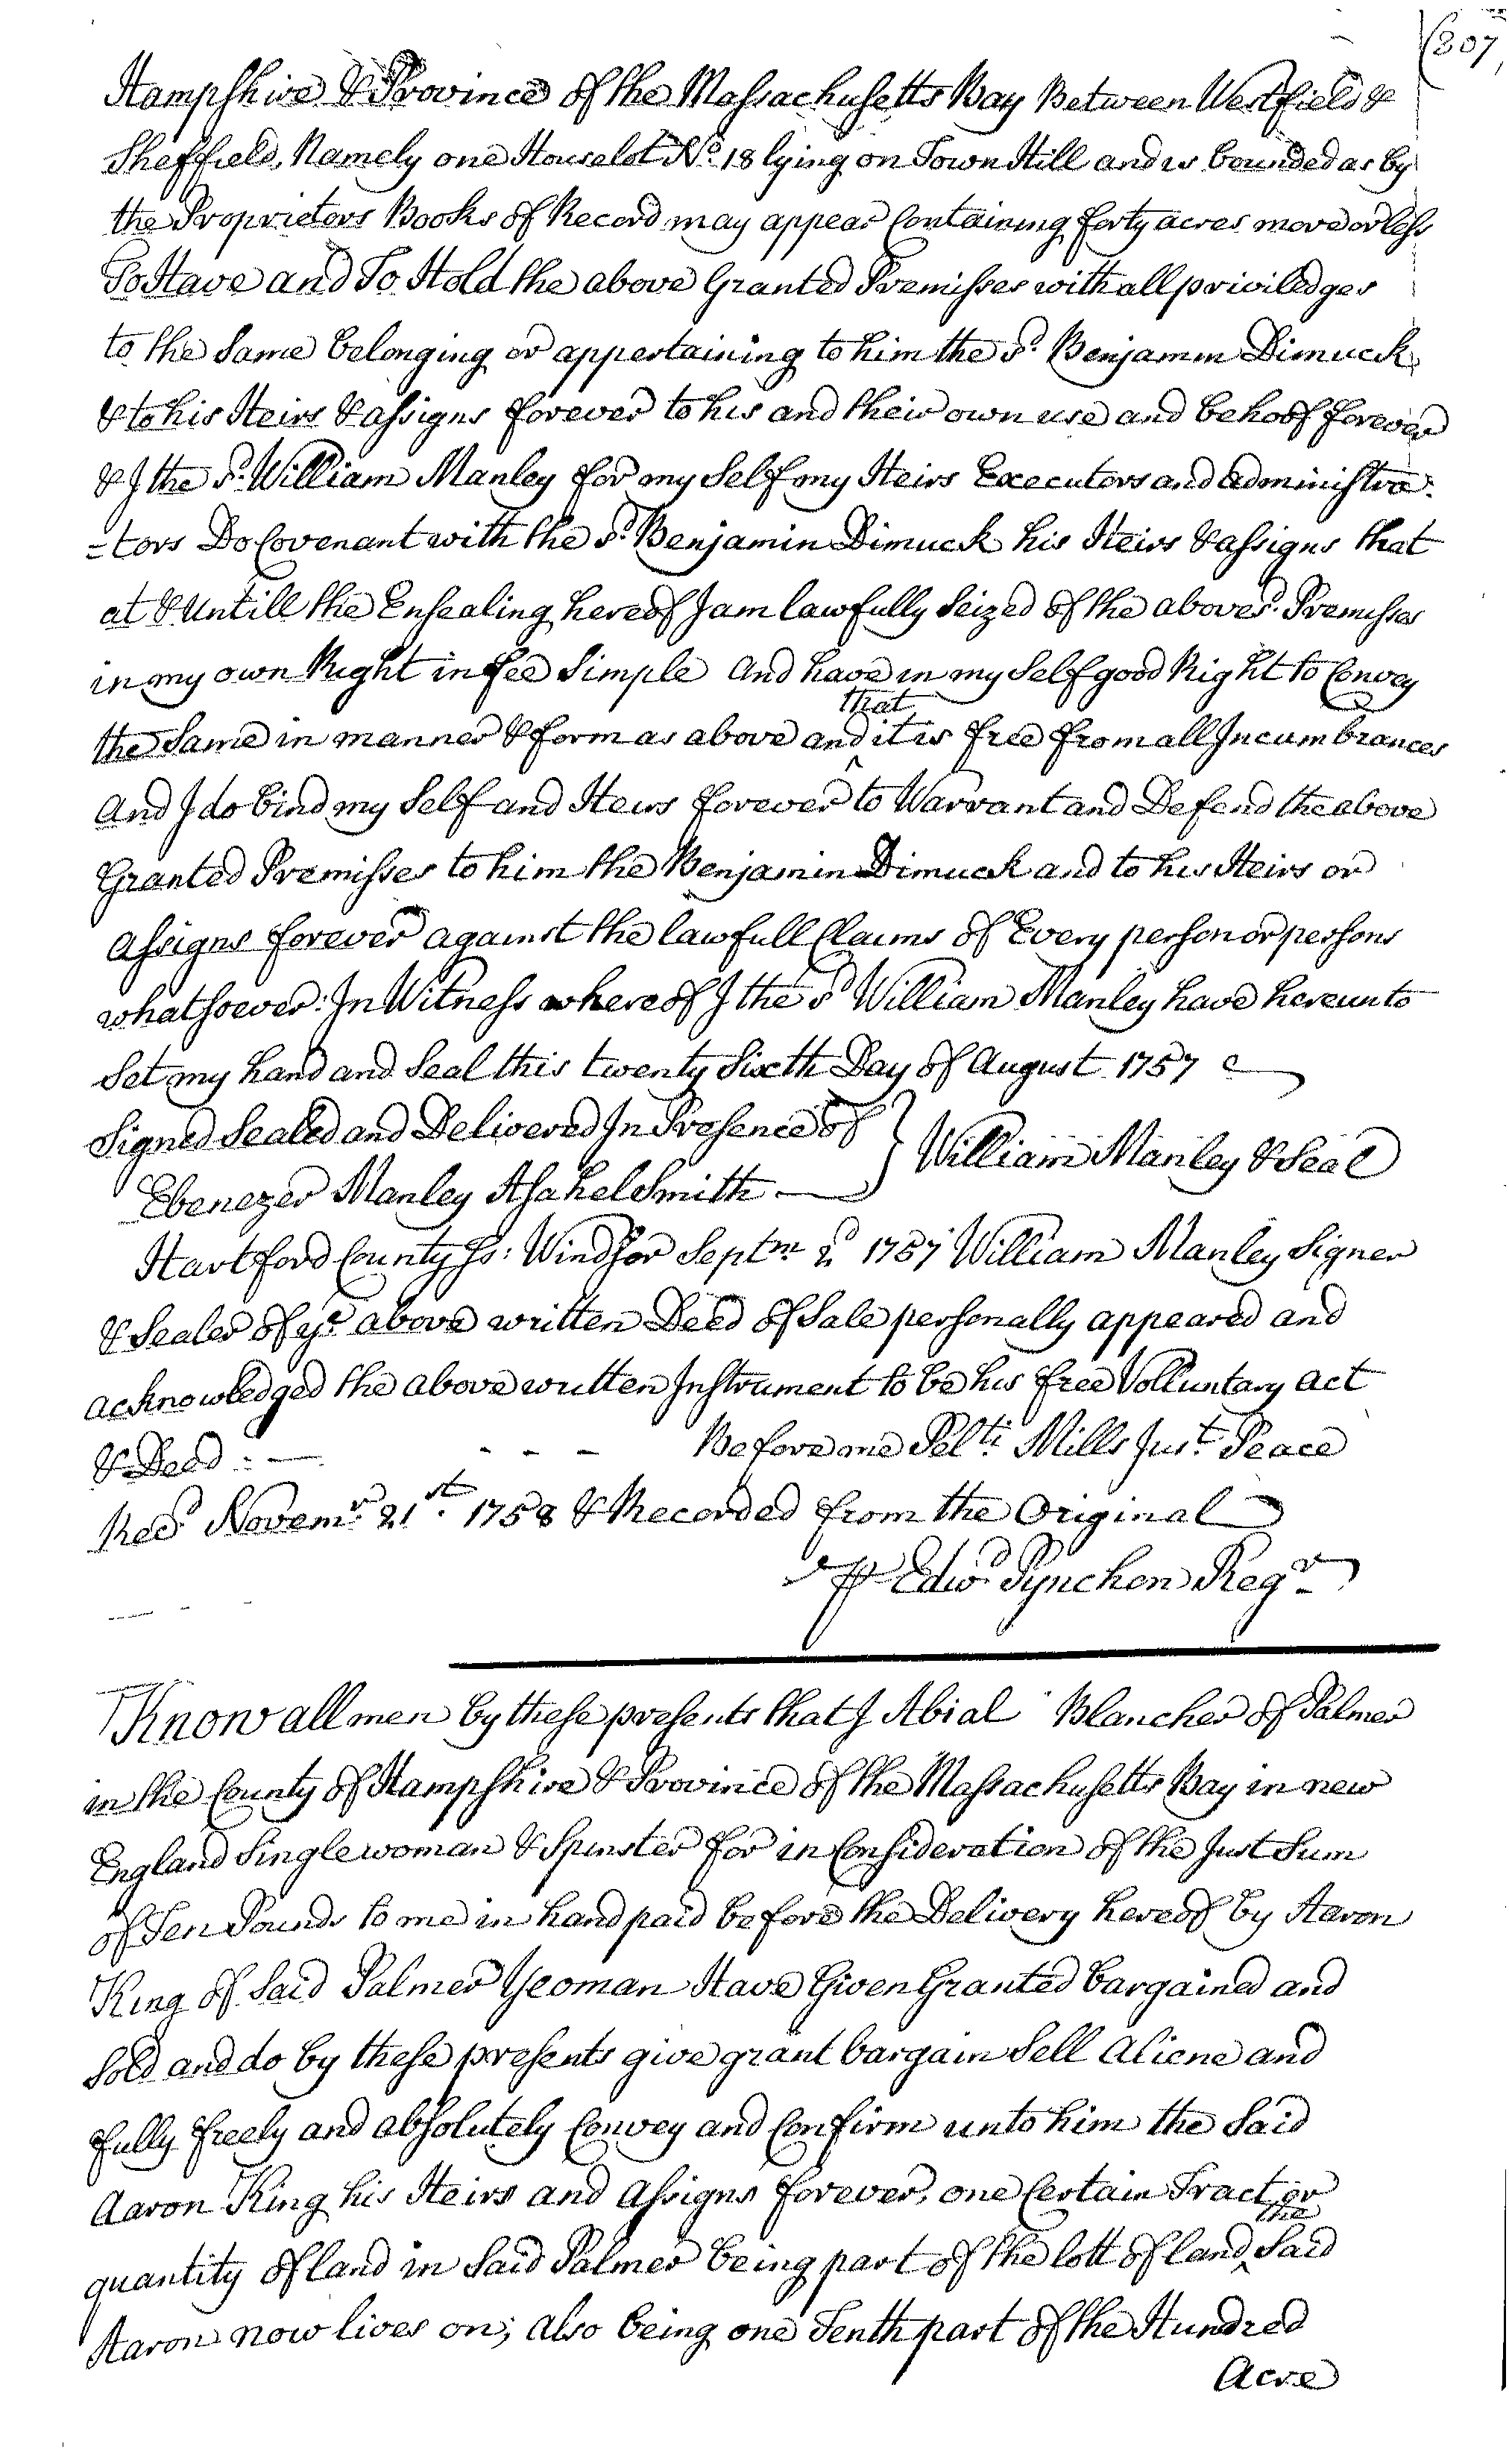 (307
Hampshire & Province of the Massachusetts Bay Between Westfield &
Sheffield, Namely one Houselot No. 18 lying on Town Hill and is bounded as by
the Proprietors Books of Record may appear Containing forty acres more or less
To Have and To Hold the above Granted Premisses with all priviledges
to the Same belonging or appertaining to him the sd. Benjamin Dimuck
& to his Heirs & assigns forever to his and their own use and behoof forever
& I the sd. William Manley for my Self my Heirs Executors and administra-
=tors Do Covenant with the sd. Benjamin Dimuck his Heirs & assigns that
at & Untill the Ensealing hereof I am lawfully Seized of the above sd. Premisses
in my own Right in fee Simple And have in my Self good Right to Convey
the Same in manner & form as above and that it is free from all Incumbrances
And I do bind my Self and Heirs forever to Warrant and Defend the above
Granted Premisses to him the Benjamin Dimuck and to his Heirs or
assigns forever against the lawfull Claims of Every person or persons
whatsoever: In Witness whereof I the sd William Manley have hereunto
Set my hand and Seal this twenty Sixth Day of August 1757
Signed Sealed and Delivered In Presence of } William Manley & Seal
Ebenezer Manley Asahel Smith
Hartford County ss: Windsor Septm 2d 1757 William Manley Signer
& Sealer of ye above written Deed of Sale personally appeared and
acknowledged the above written Instrument to be his free Volluntary act
& Deed : — - - - Before me Pelti. Mills Just. Peace
Recd Novemr. 21st. 1758 & Recorded from the Original
⅌ Edwd. Pynchon Regr.
Know all men by these presents that I Abial Blancher of Palmer
in the County of Hampshire & Province of the Massachusetts Bay in new
England Single woman & Spinster for in Consideration of the Just Sum
of Ten Pounds to me in hand paid before the Delivery hereof by Aaron
King of Said Palmer Yeoman Have Given Granted bargained and
Sold and do by these presents give grant bargain Sell Aliene and
fully freely and absolutely Convey and Confirm unto him the Said
Aaron King his Heirs and Assigns forever, one Certain Tract or
quantity of land in Said Palmer being part of the lott of land the Said
Aaron now lives on; also being one Tenth part of the Hundred
Acre